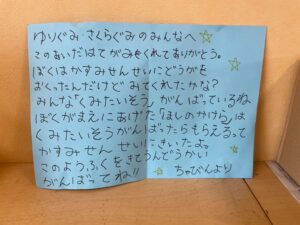 ゆりぐみ さくらぐみのみんなへ
このあいだはてがみをくれてありがとう。
ぼくはかすみせんせいにどうがを
おくったんだけどみてくれたかな?
みんな「くみたいそう」がんばっているね
ぼくがまえにあげた「ほしのかけら」は
くみたいそうがんばったらもらえるって
かすみせんせいにきいたよ。
このようふくをきてうんどうかい
がんばってね!! ちゃびんより